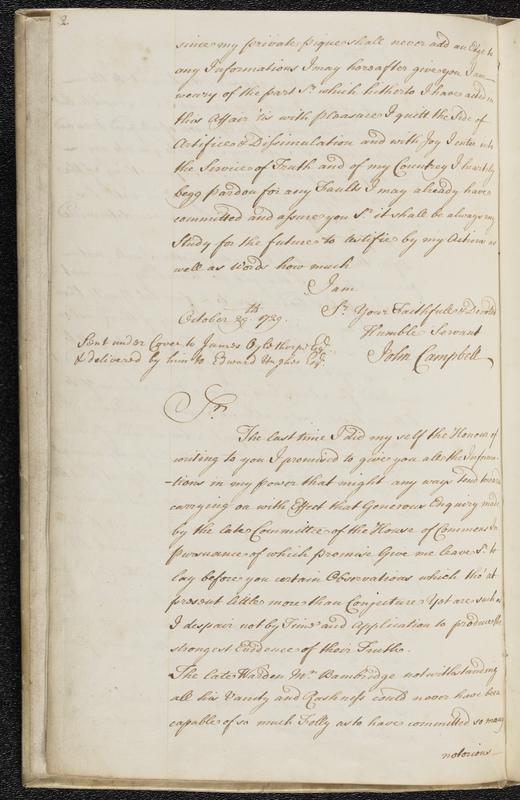 2
since my private pique shall never add an Edge to
any Informations I may hereafter give you I am
weary of the part Sr. which hitherto I have acted in
this Affair 'tis with pleasure I quitt the Side of
Artifice & Dissimulation and with Joy I enter into
the Service of Truth and of my Countrey I heartily
begg pardon for any Faults I may already have
committed and assure you Sr. it shall be always my
Study for the future to testifie by my Actions as
well as Words how much
I am
Sr. Your Faithfull & Devoted
Humble Servant
John Campbell
October 29th. 1729.
Sent under Cover to James Oglethorpe Esqr.
& delivered by him to Edward Hughes Esqr.
Sr.
The last time I did my self the Honour of
writing to you I promised to give you all the Informa-
-tions in my power that might any ways tend towards
carrying on with Effect that Generous Enquiry made
by the late Committee of the House of Commons In
pursuance of which promise Give me leave Sr. to
lay before you certain Observations which tho' at
present little more than Conjecture Yet are such as
I despair not by Time and Application to produce the
strongest Evidence of their Truth.
The late Warden Mr. Bambridge notwithstanding
all his Vanity and Rashness could never have been
capable of so much Folly as to have committed so many
notorious